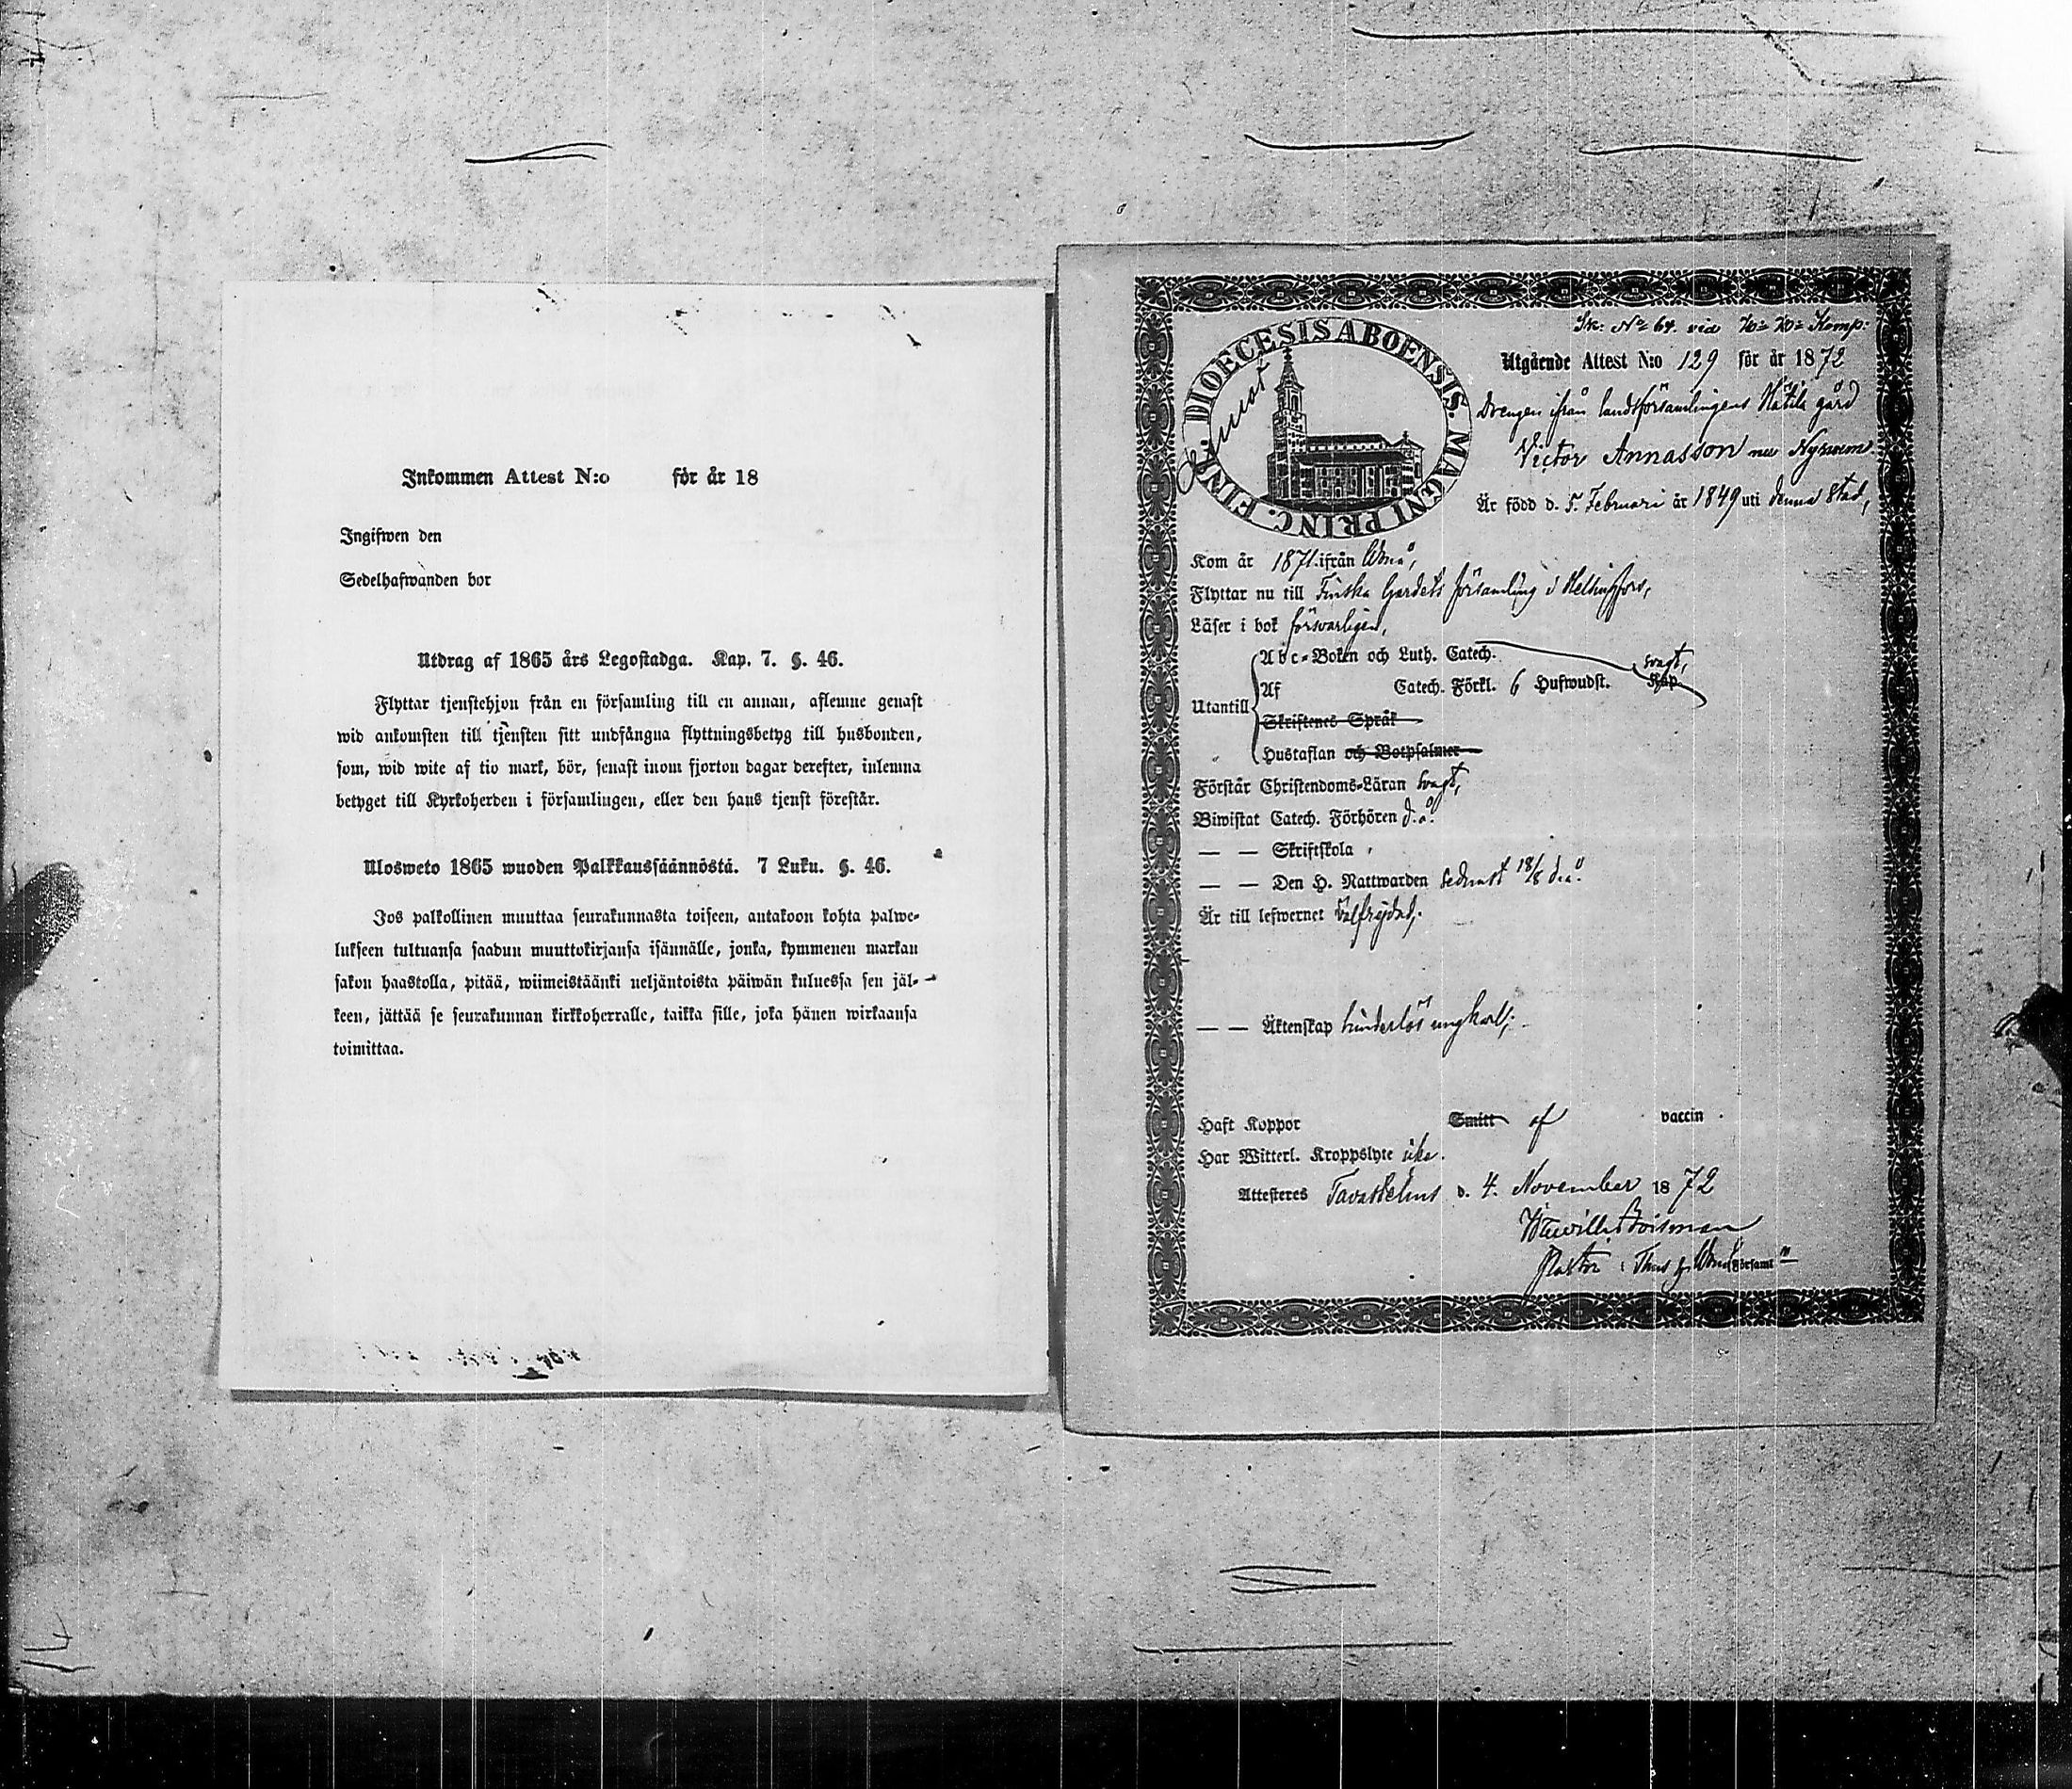 Inkommen Attest N:o för år 18
Ingifwen den
Sedelhafwanden bor
Utdrag af 1865 års Legostadga. Kap. 7. §. 46.
Flyttar tjenstehjon från en församling till en annan, aflemne genast
wid ankomsten till tjensten sitt undfångna flyttningsbetyg till husbonden,
som, wid wite af tio mark, bör, senast inom fjorton dagar derefter, inlemna
betyget till Kyrkoherden i församlingen, eller den hans tjenst förestår.
Ulosweto 1865 wuoden Palkkaussäännöstä. 7 Luku. §. 46.
Jos palkollinen muuttaa seurakunnasta toiseen, antakoon kohta palwe-
lukseen tultuansa saadun muuttokirjansa isännälle, jonka, kymmenen markan
sakon haastolla, pitää, wiimeistäänki neljäntoista päiwän kuluessa sen jäl-
keen, jättää se seurakunnan kirkkoherralle, taikka sille, joka hänen wirkaansa
toimittaa.
DIOECESIS ABOENSIS. MAGNI PRINC. FINL.
Sk: No 64. vid Komp:
Utgående Attest N:o 129 för år 1872
Drengen ifrån landsförsamlingens Hätilä gård
Victor Annasson nu Nyman
Är född d. 5. Februari år 1849 uti denna Stad,
Kom år 1871. ifrån
Flyttar nu till Finska Gardets församling i Helsingfors,
Läser i bok försvarligen,
Utantill
Abc-Boken och Luth. Catech.
Af Catech. Förkl. 6 Hufwudst. Kap. svagt,
Skriftenes Språk
Hustaflan och Botpsalmer
Förstår Christendoms-Läran svagt,
Biwistat Catech. Förhören d. å.
— — Skriftskola
— — Den H. Nattwarden sednast 18/8 d. å.
Är till lefwernet välfrejdad,
— — Äktenskap hinderlös ungkarl;
Haft Koppor Smitt af vaccin
Har Witterl. Kroppslyte icke.
Attesteres Tavastehus d. 4. November 1872
Boisman
Pastor i Församl